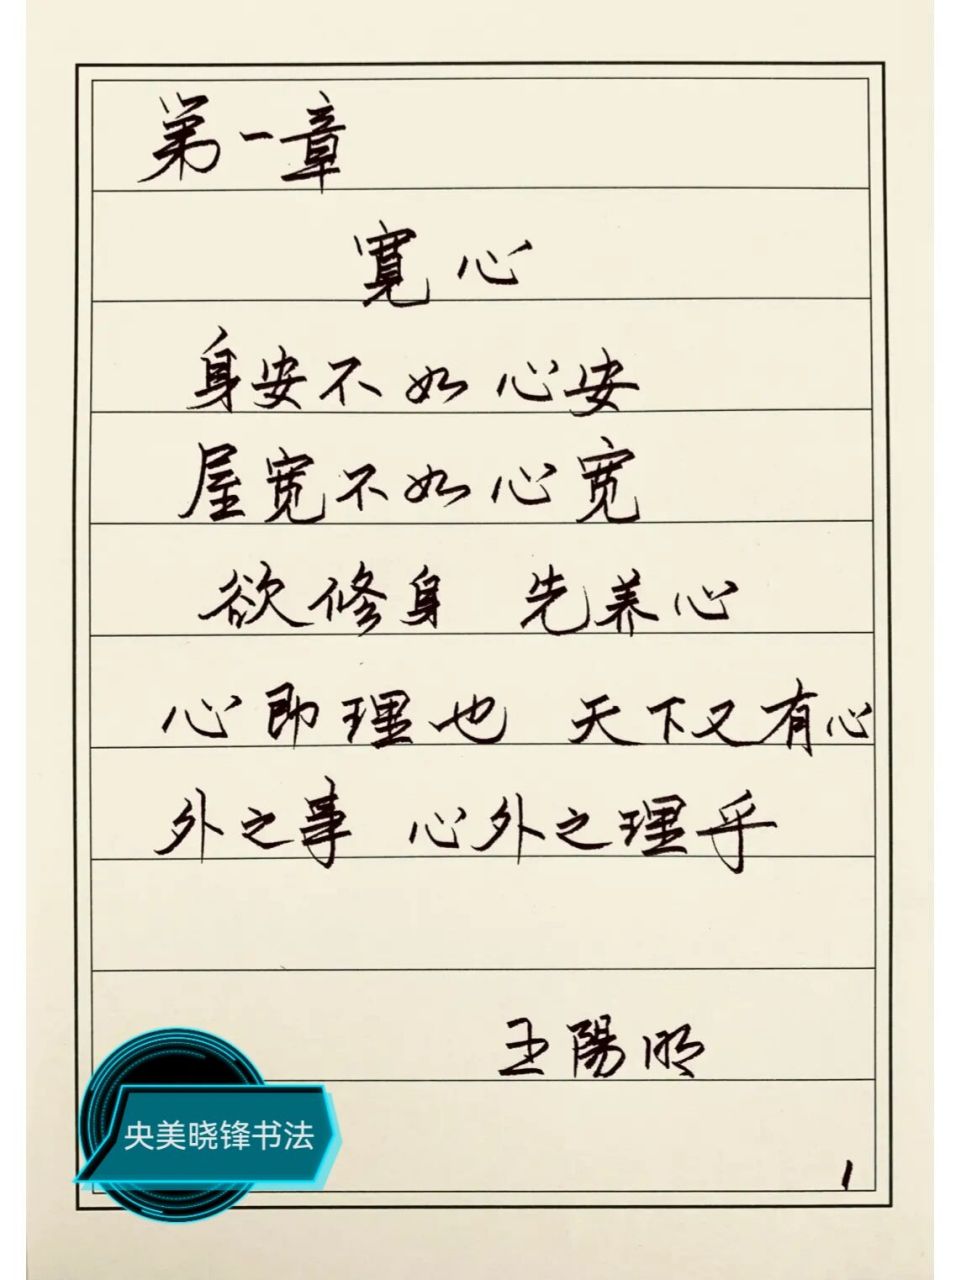 第一章
寬心
身安不如心安
屋宽不如心宽
欲修身 先养心
心即理也 天下又有心
外之事 心外之理乎
王陽明
央美晓锋书法
1